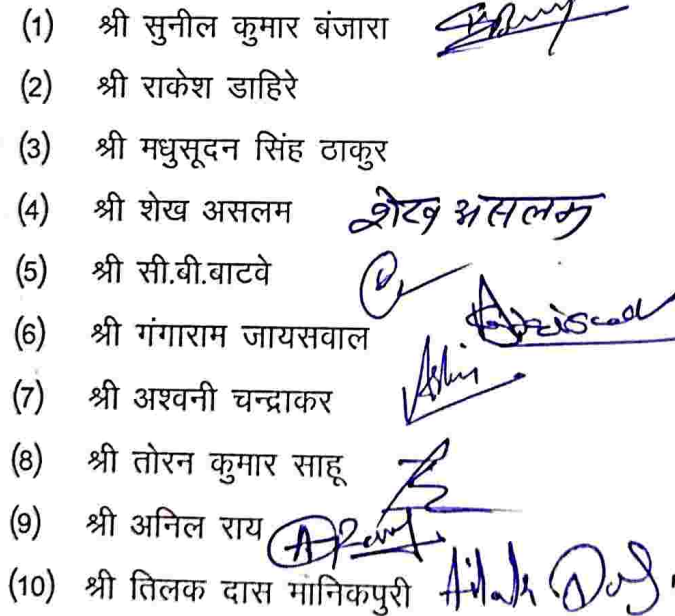 (1) श्री सुनील कुमार बंजारा
(2) श्री राकेश डाहिरे
(3) श्री मधुसूदन सिंह ठाकुर
(4) श्री शेख असलम शेख असलम
(5) श्री सी.बी.बाटवे
(6) श्री गंगाराम जायसवाल
(7) श्री अश्वनी चन्द्राकर
(8) श्री तोरन कुमार साहू
(9) श्री अनिल राय
(10) श्री तिलक दास मानिकपुरी